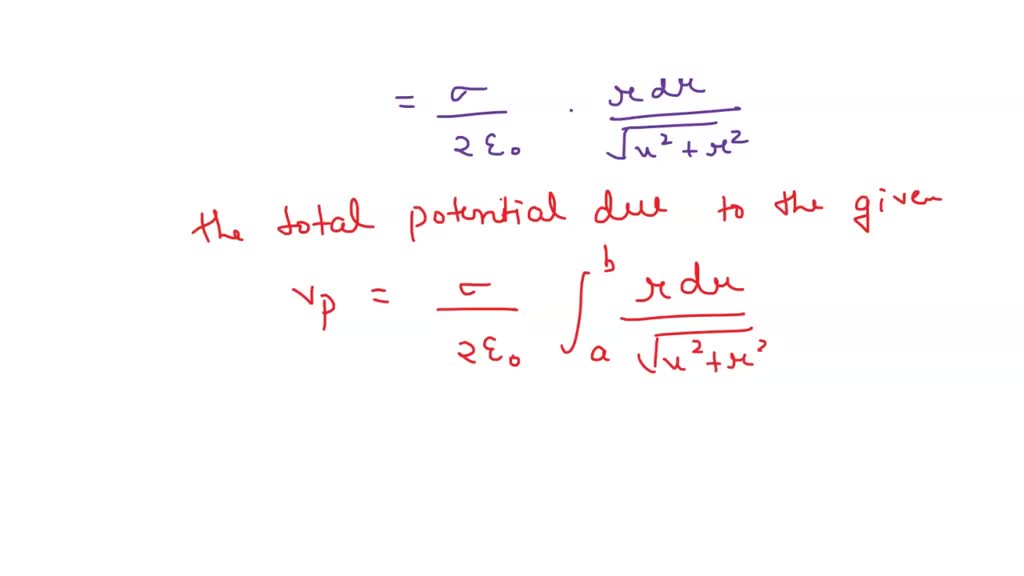 = σ/2ε₀ · r dr/√x²+r²
the total potential due to the given
Vp = σ/2ε₀ ∫ₐᵇ r dr/√x²+r²